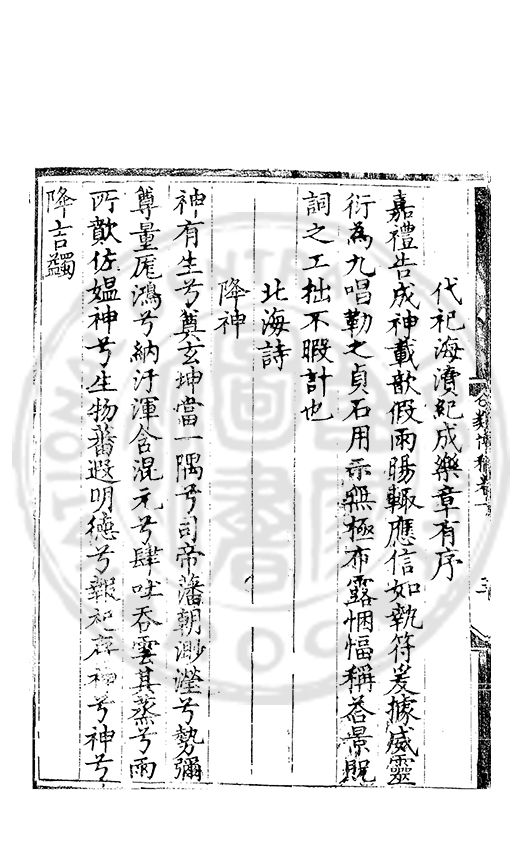 代祀海瀆紀成樂章有序
嘉禮告成神載歆假雨暘輒應信如執符爰據威靈
衍為九唱勒之貞石用示無極布露悃愊稱荅景貺
詞之工拙不暇計也
北海詩
降神
神有生兮奠玄坤當一隅兮司帝藩朝渺瀅兮勢彌
尊量厖鴻兮納汙渾含混元兮肆吐吞雲其蒸兮雨
所歕佐媪神兮生物蕃遐明德兮報祀存神兮神兮
降吉蠲